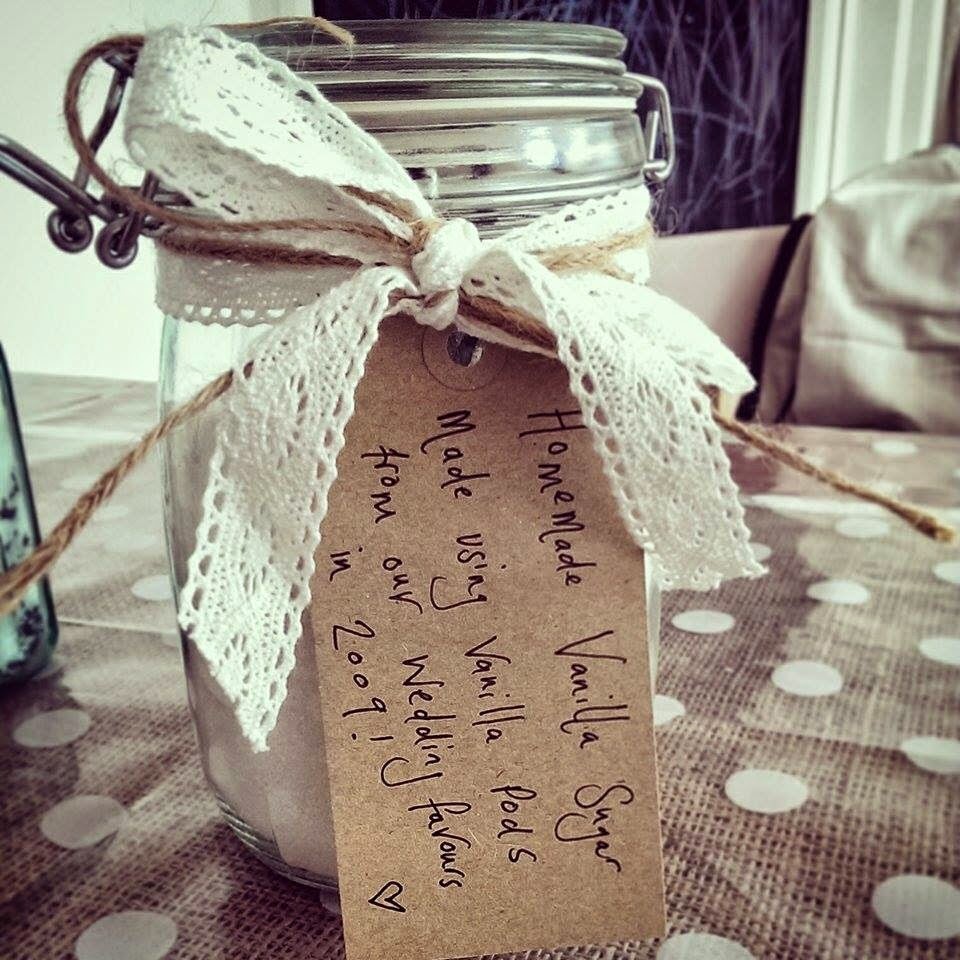 Homemade Vanilla Sugar
Made using Vanilla Pods
from our Wedding favours
in 2009! ♡